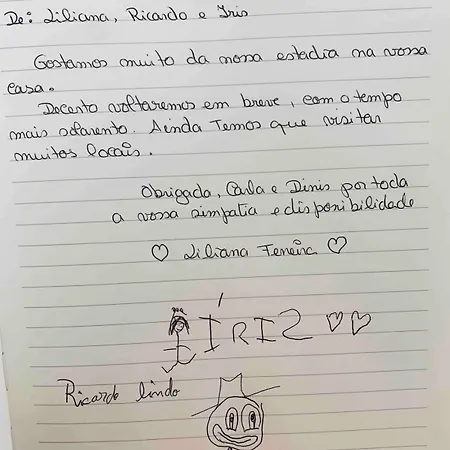 De: Liliana, Ricardo e Iris
Gostamos muito da nossa estadia na vossa
casa.
Decerto voltaremos em breve, com o tempo
mais solarento. Ainda Temos que visitar
muitos locais.
Obrigada, Carla e Dinis por toda
a vossa simpatia e disponibilidade
♡ Liliana Ferreira ♡
ÍRIS ♡♡
Ricardo lindo